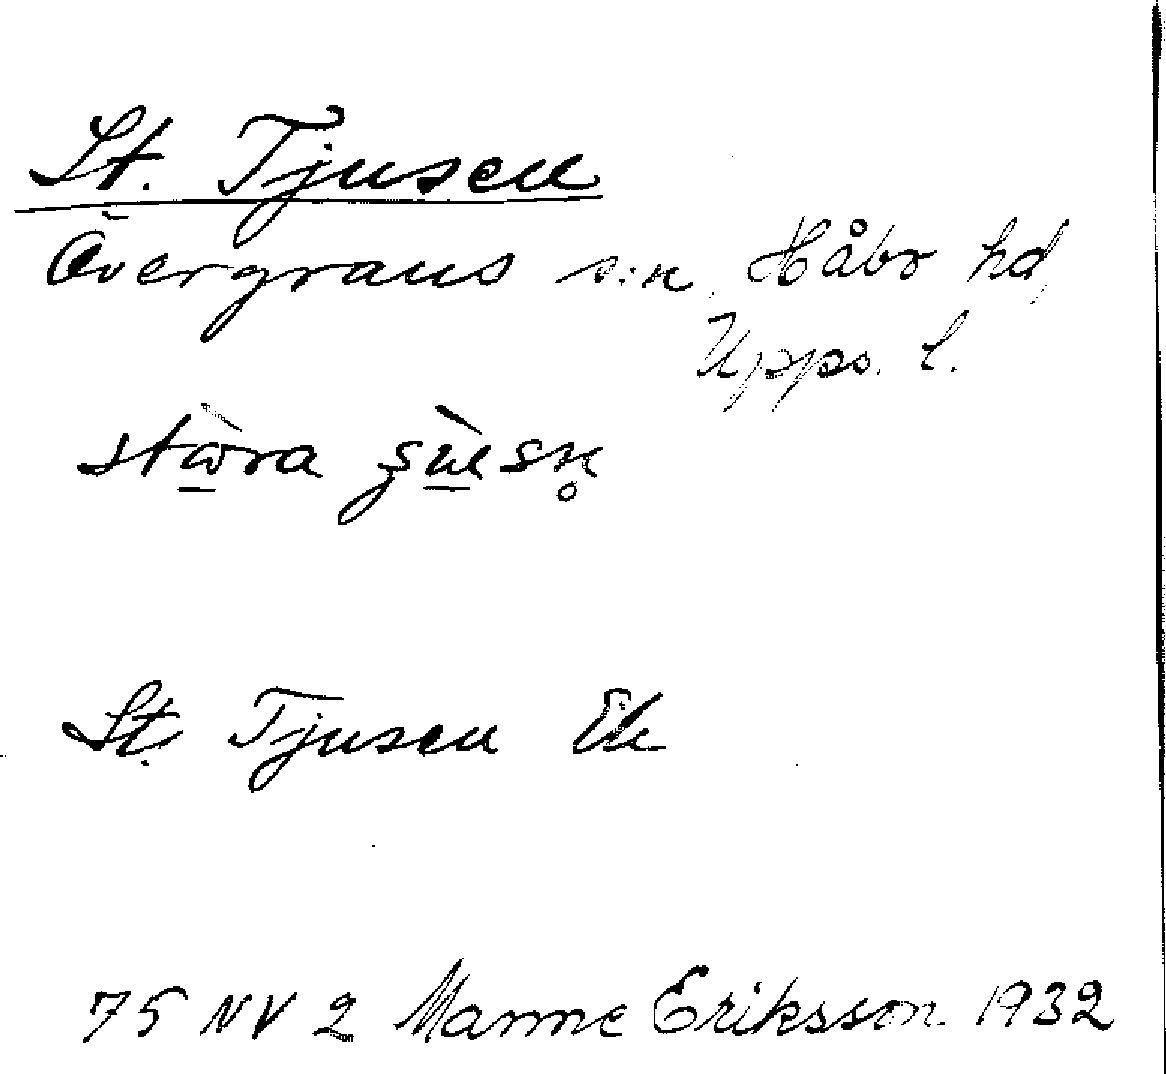 St. Tjusen
Övergrans s:n, Håbo hd,
Upps. l.
St. Tjusen Ek
75 NV 2 Manne Eriksson 1932